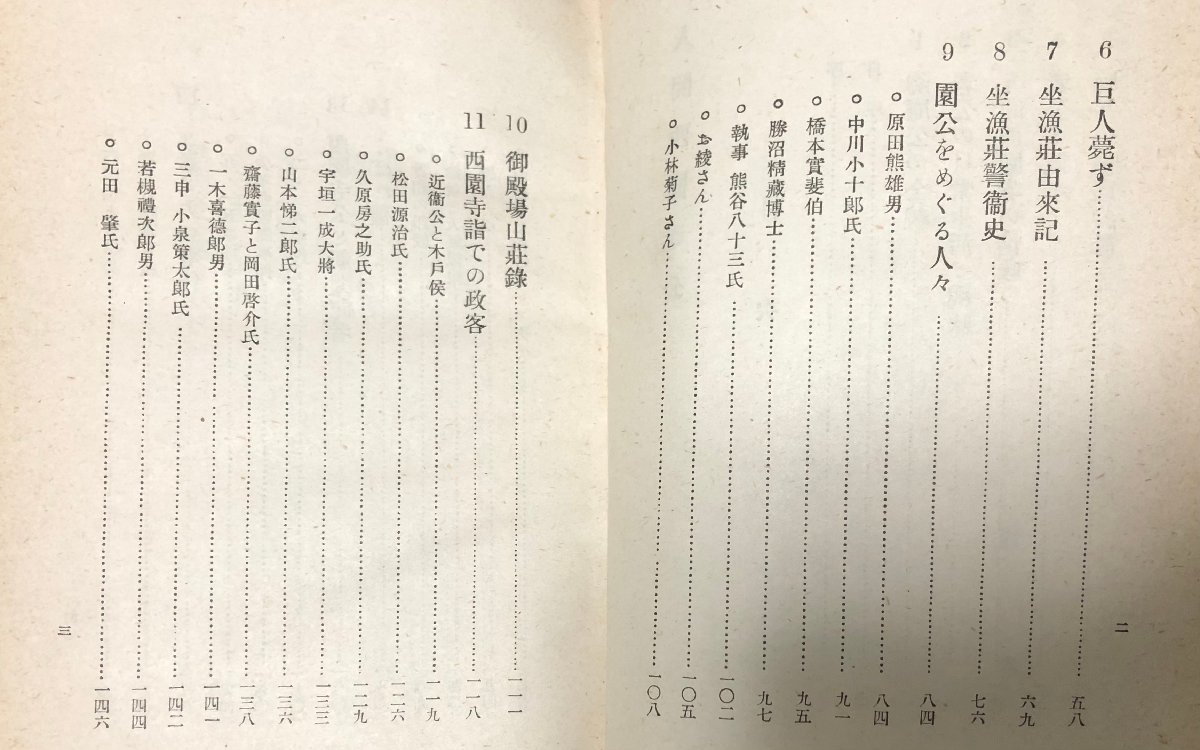 6 巨人薨ず…………五八
7 坐漁莊由來記…………六九
8 坐漁莊警衞史…………七六
9 園公をめぐる人々…………八四
○原田熊雄男…………八四
○中川小十郎氏…………九一
○橋本實斐伯…………九五
○勝沼精藏博士…………九七
○執事 熊谷八十三氏…………一〇二
○お綾さん…………一〇五
○小林菊子さん…………一〇八
二
10 御殿場山莊錄…………一一一
11 西園寺詣での政客…………一一八
○近衞公と木戶侯…………一一九
○松田源治氏…………一二六
○久原房之助氏…………一二九
○宇垣一成大將…………一三三
○山本悌二郎氏…………一三六
○齋藤實子と岡田啓介氏…………一三八
○一木喜德郎男…………一四一
○三申 小泉策太郎氏…………一四二
○若槻禮次郎男…………一四四
○元田 肇氏…………一四六
三